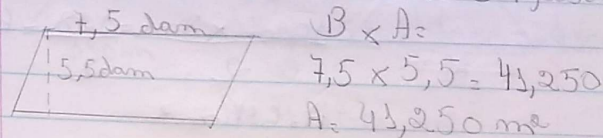 7,5 dam
5,5dam
B x A=
7,5 x 5,5 = 41,250
A= 41,250 m²